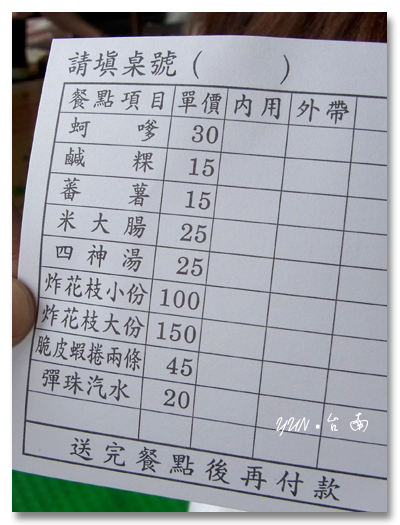 請填桌號（　　）
餐點項目 單價 內用 外帶
蚵嗲 30
鹹粿 15
蕃薯 15
米大腸 25
四神湯 25
炸花枝小份 100
炸花枝大份 150
脆皮蝦捲兩條 45
彈珠汽水 20
YUN.台南
送完餐點後再付款